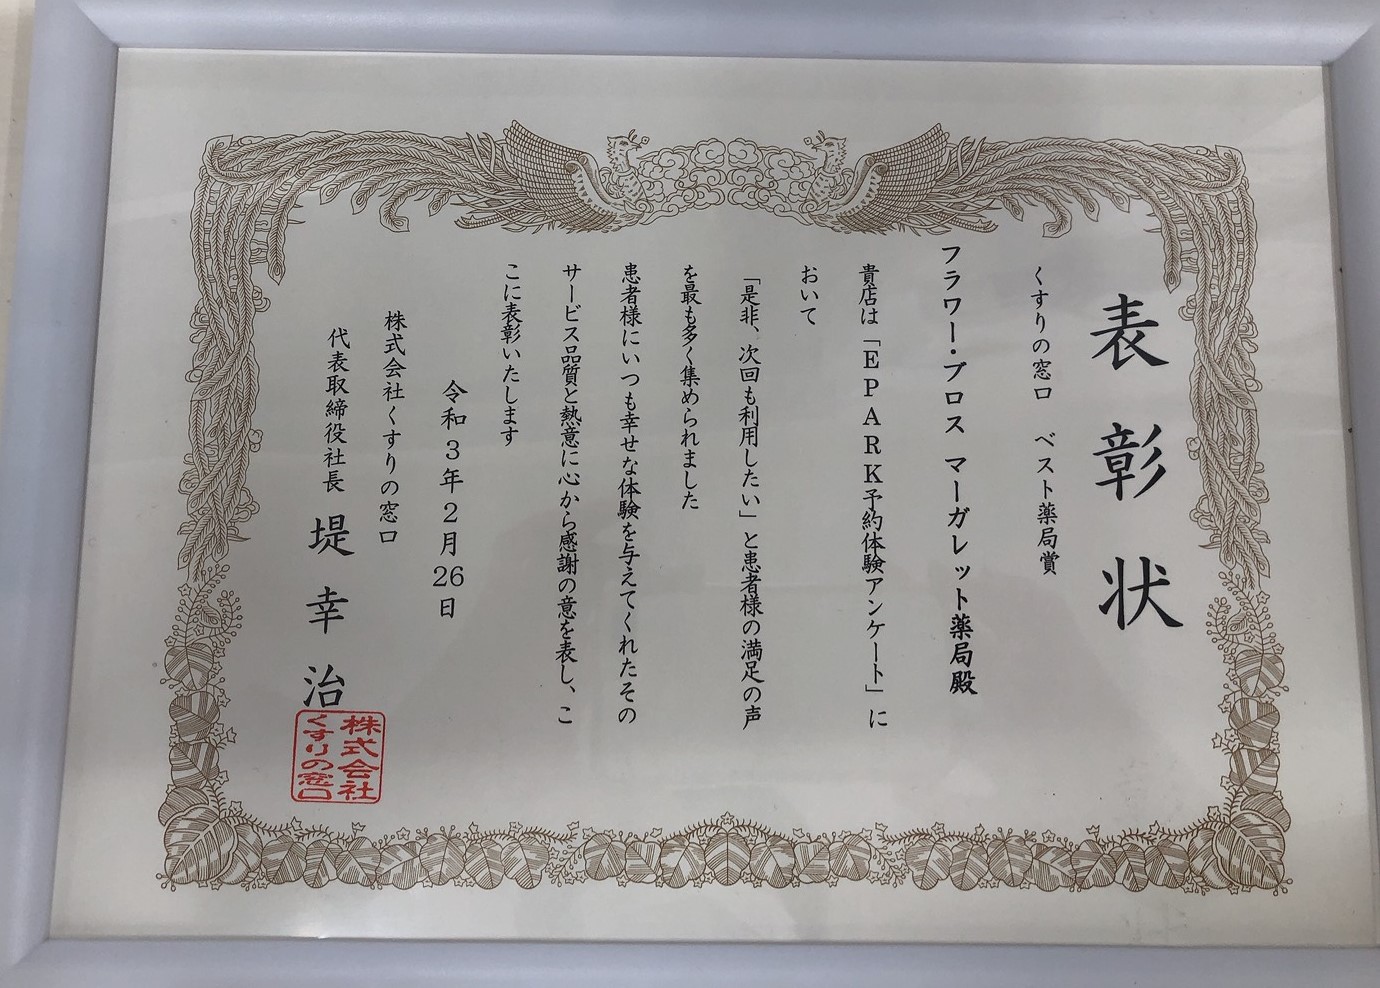 表彰状
くすりの窓口 ベスト薬局賞
フラワー・ブロス マーガレット薬局殿
貴店は「EPARK予約体験アンケート」に
おいて
「是非、次回も利用したい」と患者様の満足の声
を最も多く集められました
患者様にいつも幸せな体験を与えてくれたその
サービス品質と熱意に心から感謝の意を表し、こ
こに表彰いたします
令和3年2月26日
株式会社くすりの窓口
代表取締役社長 堤幸治
株式会社
くすりの窓口